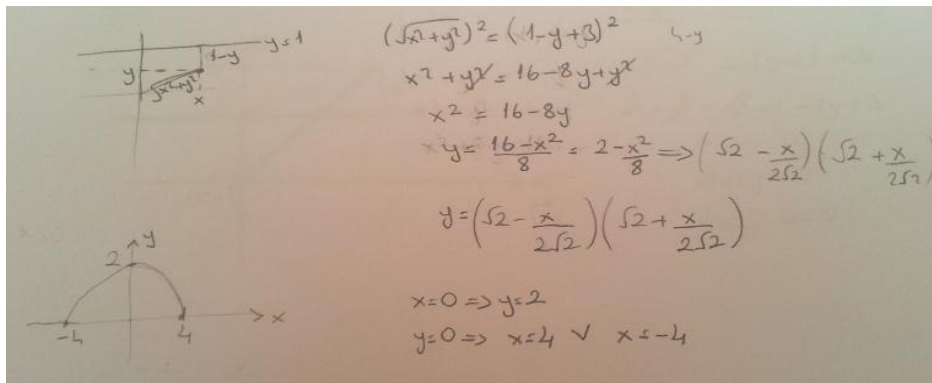 y=1
1-y
y
√x²+y²
x
(√x²+y²)²=(1-y+3)²
4-y
x²+y²=16-8y+y²
x²=16-8y
y=(16-x²)/8=2-x²/8=>(√2-x/2√2)(√2+x/2√2)
y=(√2-x/2√2)(√2+x/2√2)
y
2
-4
4
x
x=0=>y=2
y=0=>x=4 ∨ x=-4